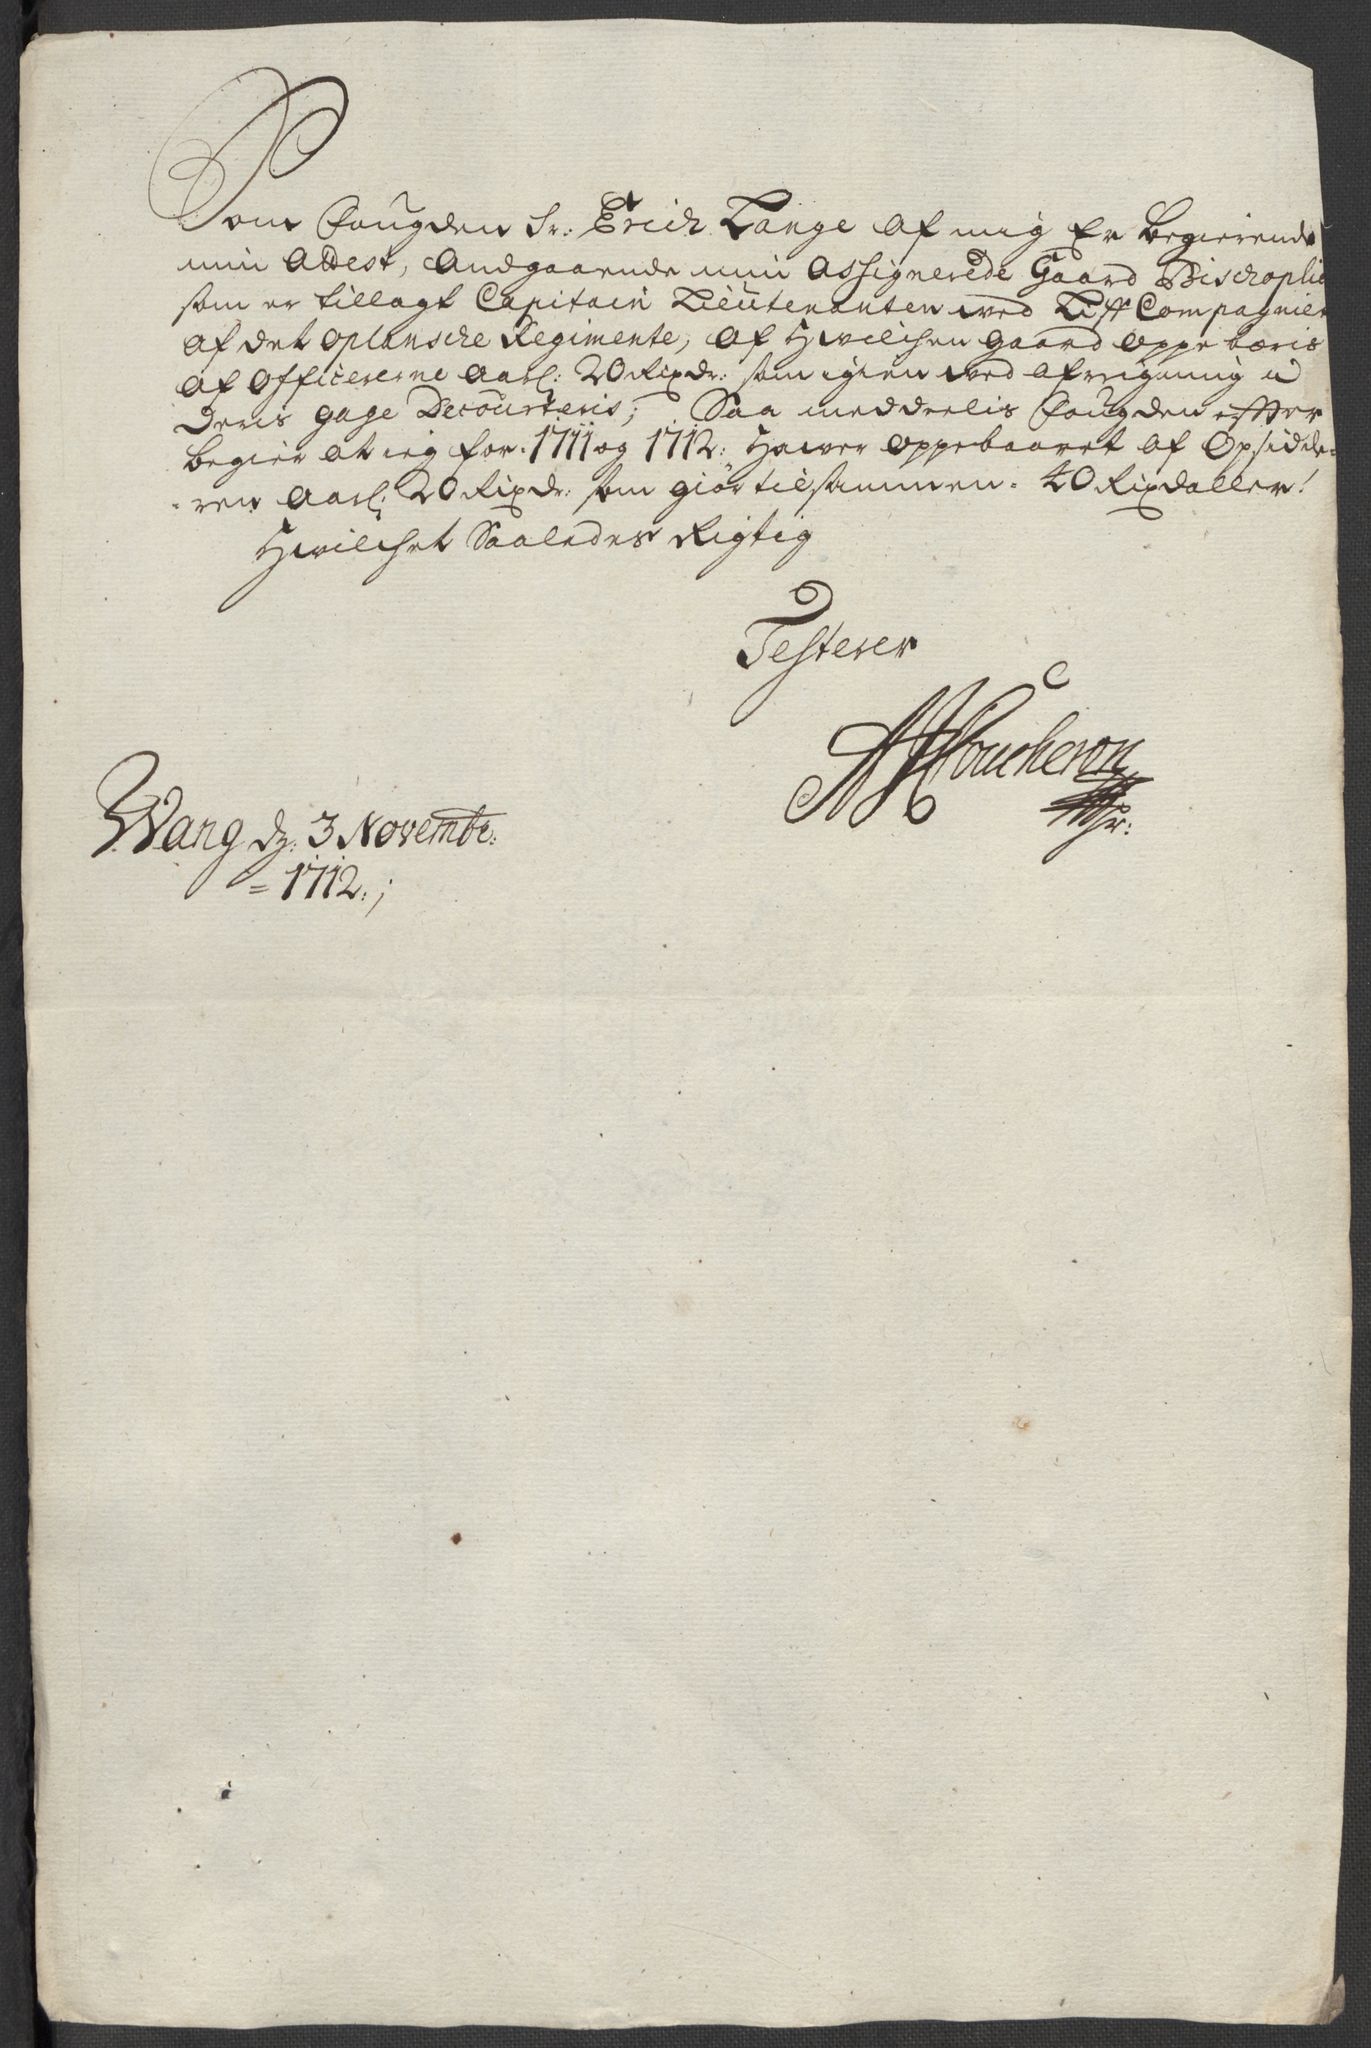 Som Fougden Sr: Erich Lange af mig Er begierende
min Attest, Andgaaende min Assignerede Gaard Bischoplie
som er tillagt Capitain Lieutenanten wed Liff Compagniet
af det oplansche Regimente, af Hwilchen gaard oppebæris
af Officererne Aarl: 20 Rixdr: som igien wed afreigning i
Deris gage Decourteris; Saa meddeelis Fougden effter
begier at ieg for. 1711 og 1712: Hawer oppebaaret af Opsidde=
=ren Aarl: 20 Rixdr: som giør tilsammen. 40 Rixdaller!
Hwilchet Saaledes Rigtig
Testerer
Coucheron
Wang dz: 3 Novembr:
= 1712.;